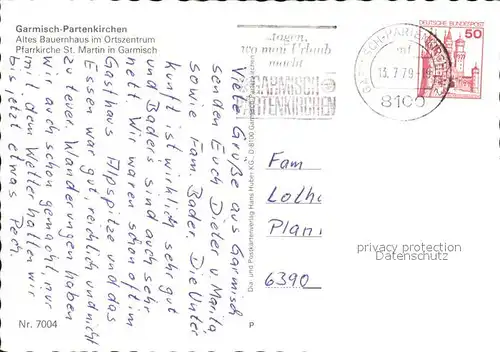 Garmisch-Partenkirchen
Altes Bauernhaus im Ortszentrum
Pfarrkirche St. Martin in Garmisch
Viele Grüße aus Garmisch
senden Euch Dieter u. Marita
sowie Fam. Bader. Die Unter
kunft ist wirklich sehr gut
und Baders sind auch sehr
nett. Wir waren schon oft im
Gasthaus Alpspitze und das
Essen war gut, reichlich und nicht
zu teuer. Wanderungen haben
wir auch schon gemacht, nur
mit dem Wetter hatten wir
bis jetzt etwas Pech.
Nr. 7004
P
Dia- und Postkartenverlag Hans Huber KG, D 8100 Garmisch-Partenkirchen
sagen,
wo man Urlaub
macht
GARMISCH
PARTENKIRCHEN
GARMISCH-PARTENKIRCHEN
13.7.79
8100
DEUTSCHE BUNDESPOST
50
Fam
Lotha
Plan
6390
privacy protection
Datenschutz